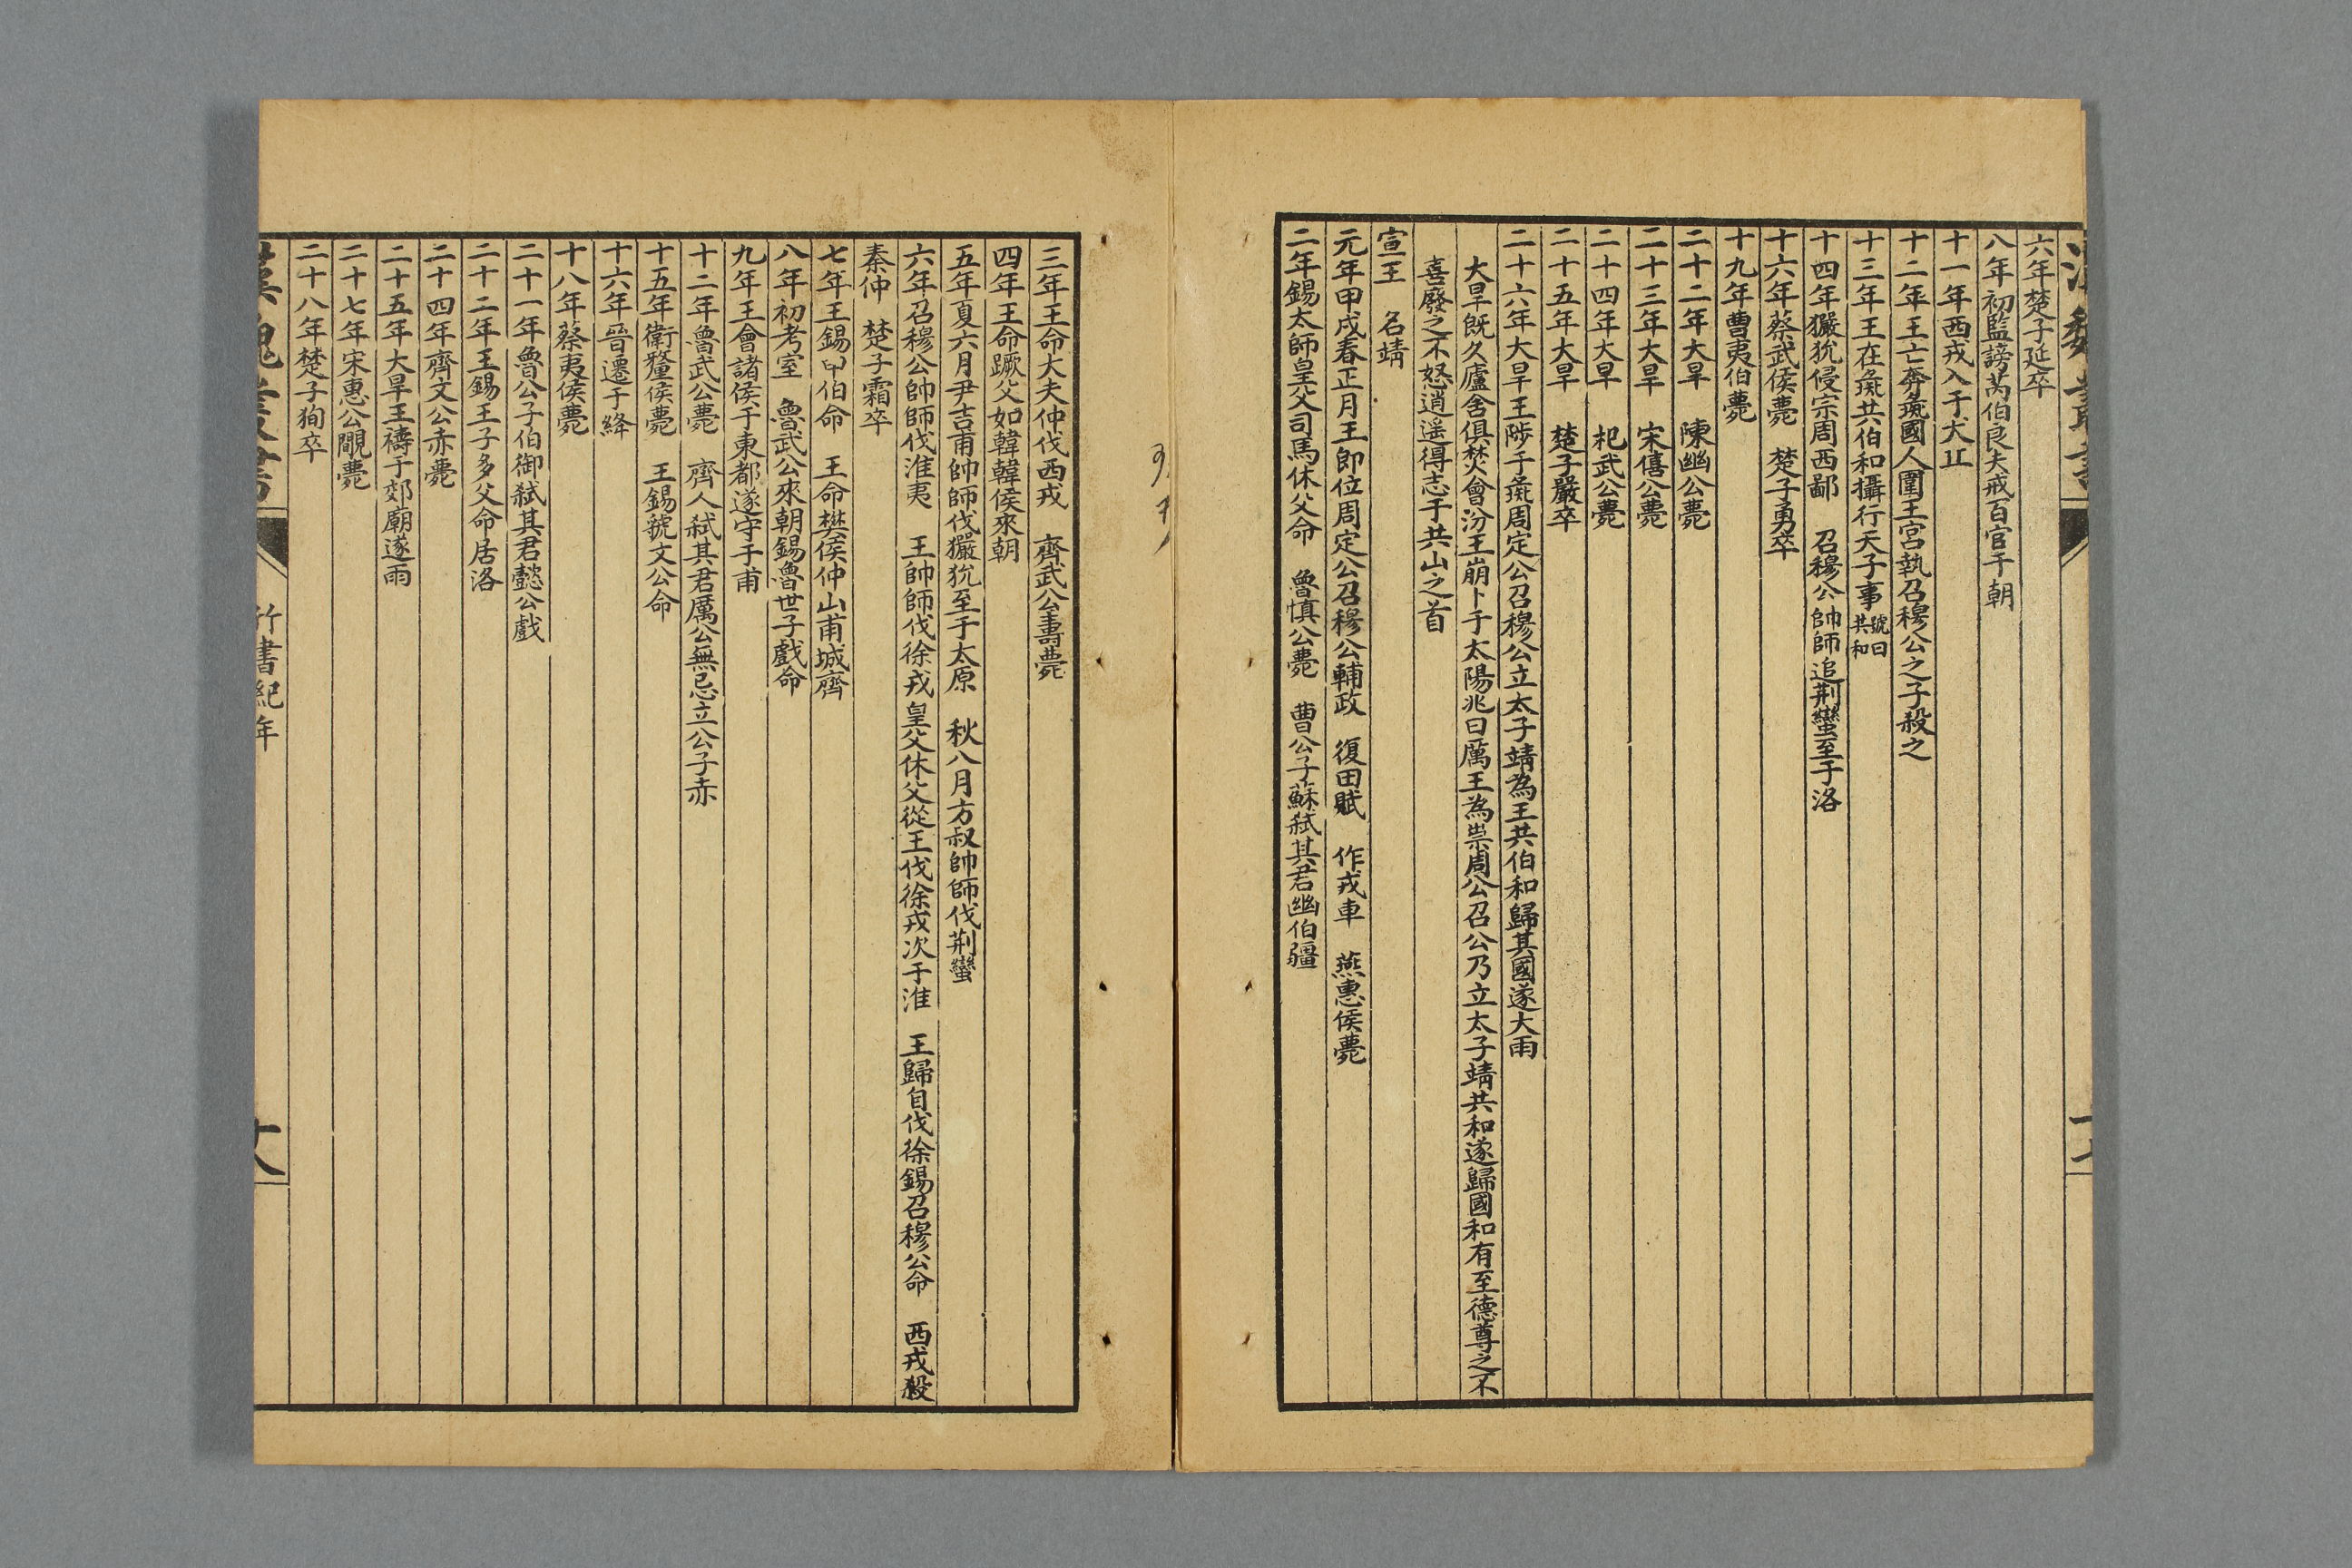 六年楚子延卒
八年初監謗芮伯良夫戒百官于朝
十一年西戎入于犬丘
十二年王亡奔彘國人圍王宮執召穆公之子殺之
十三年王在彘共伯和攝行天子事號曰共和
十四年玁狁侵宗周西鄙 召穆公帥師追荆蠻至于洛
十六年蔡武侯薨 楚子勇卒
十九年曹夷伯薨
二十二年大旱 陳幽公薨
二十三年大旱 宋僖公薨
二十四年大旱 杞武公薨
二十五年大旱 楚子嚴卒
二十六年大旱王陟于彘周定公召穆公立太子靖為王共伯和歸其國遂大雨
大旱既久廬舍俱焚會汾王崩卜于太陽兆曰厲王為祟周公召公乃立太子靖共和遂歸國和有至德尊之不
喜廢之不怒逍遥得志于共山之首
宣王 名靖
元年甲戌春正月王即位周定公召穆公輔政 復田賦 作戎車 燕惠侯薨
二年錫太師皇父司馬休父命 魯慎公薨 曹公子蘇弒其君幽伯疆
三年王命大夫仲伐西戎 齊武公壽薨
四年王命蹶父如韓韓侯來朝
五年夏六月尹吉甫帥師伐玁狁至于太原 秋八月方叔帥師伐荆蠻
六年召穆公帥師伐淮夷 王帥師伐徐戎皇父休父從王伐徐戎次于淮 王歸自伐徐錫召穆公命 西戎殺
秦仲 楚子霜卒
七年王錫申伯命 王命樊侯仲山甫城齊
八年初考室 魯武公來朝錫魯世子戲命
九年王會諸侯于東都遂守于甫
十二年魯武公薨 齊人弒其君厲公無忌立公子赤
十五年衛釐侯薨 王錫虢文公命
十六年晉遷于絳
十八年蔡夷侯薨
二十一年魯公子伯御弒其君懿公戲
二十二年王錫王子多父命居洛
二十四年齊文公赤薨
二十五年大旱王禱于郊廟遂雨
二十七年宋惠公覵薨
二十八年楚子狥卒
漢魏叢書
竹書紀年
十八